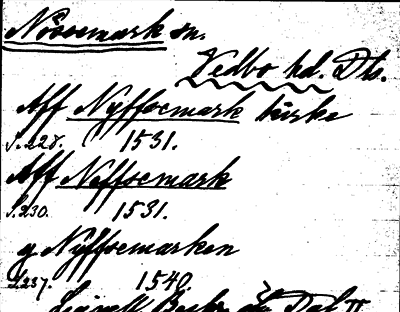 Nössemark sn.
Vedbo hd. Dls.
Aff Nyffsemark kirke
S. 228. 1531.
Aff Neffsemark
S. 230. 1531.
y Nyffsemarken
S. 237. 1540.
Lignell Beskr. öfv. Dal II